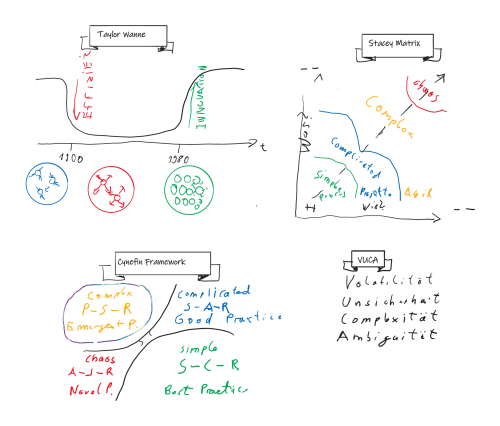 Taylor Wanne
Effizienz
INNOVATION
1900
1980
t
Stacey Matrix
Was?
chaos
Complex
Complicated
Simple
process
Projekte
Agil
Wie?
Cynefin Framework
Complex
P-S-R
Emergent P.
Complicated
S-A-R
Good Practice
chaos
A-S-R
Novel P.
simple
S-C-R
Best Practice
VUCA
Volatilität
Unsicherheit
Complexität
Ambiguität